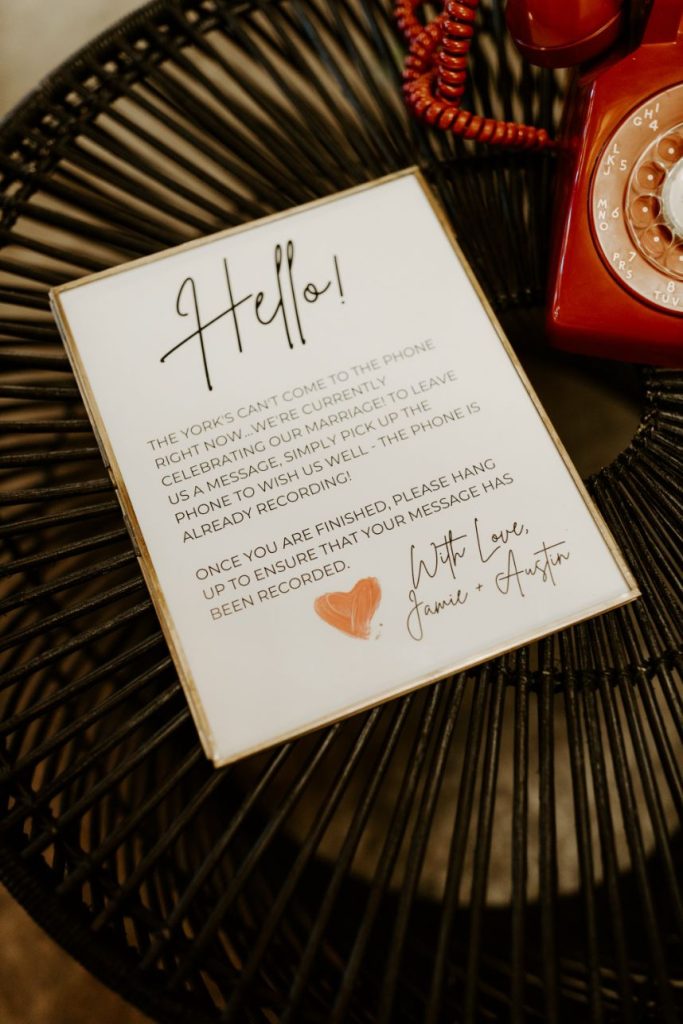 Hello!
THE YORK'S CAN'T COME TO THE PHONE
RIGHT NOW...WE'RE CURRENTLY
CELEBRATING OUR MARRIAGE! TO LEAVE
US A MESSAGE, SIMPLY PICK UP THE
PHONE TO WISH US WELL - THE PHONE IS
ALREADY RECORDING!
ONCE YOU ARE FINISHED, PLEASE HANG
UP TO ENSURE THAT YOUR MESSAGE HAS
BEEN RECORDED.
With Love,
Jamie + Austin
GHI
4
JKL
5
MNO
6
PRS
7
TUV
8